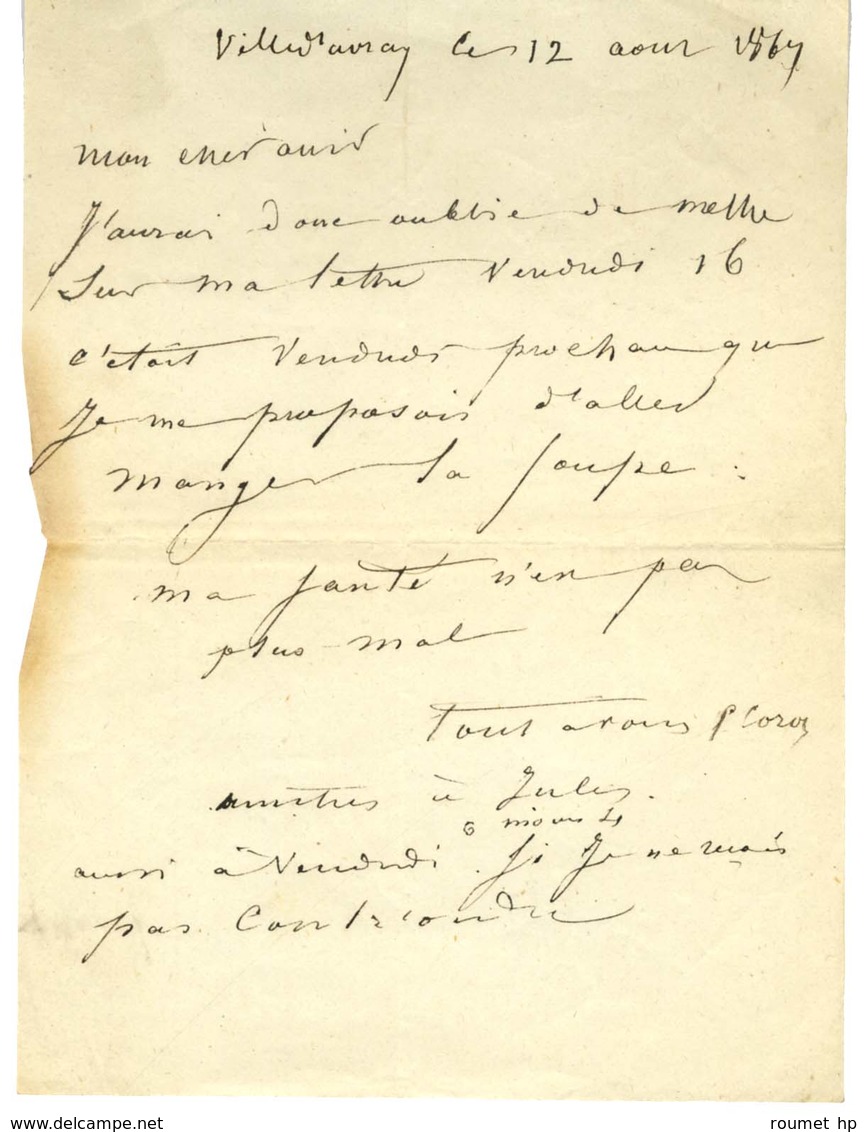 Villed'avray le 12 aout 1867
mon cher ami
J'aurai donc oublie de mettre
Sur ma lettre Vendredi 16
c'étoit Vendredi prochain que
Je me proposois d'aller
manger la soupe.
ma santé n'en pas
plus mal
tout à vous C Corot
amitiés à Jules.
6 moins 4
aussi à Vendredi. Si Je ne reçois
pas Contr'ordre
roumet hp